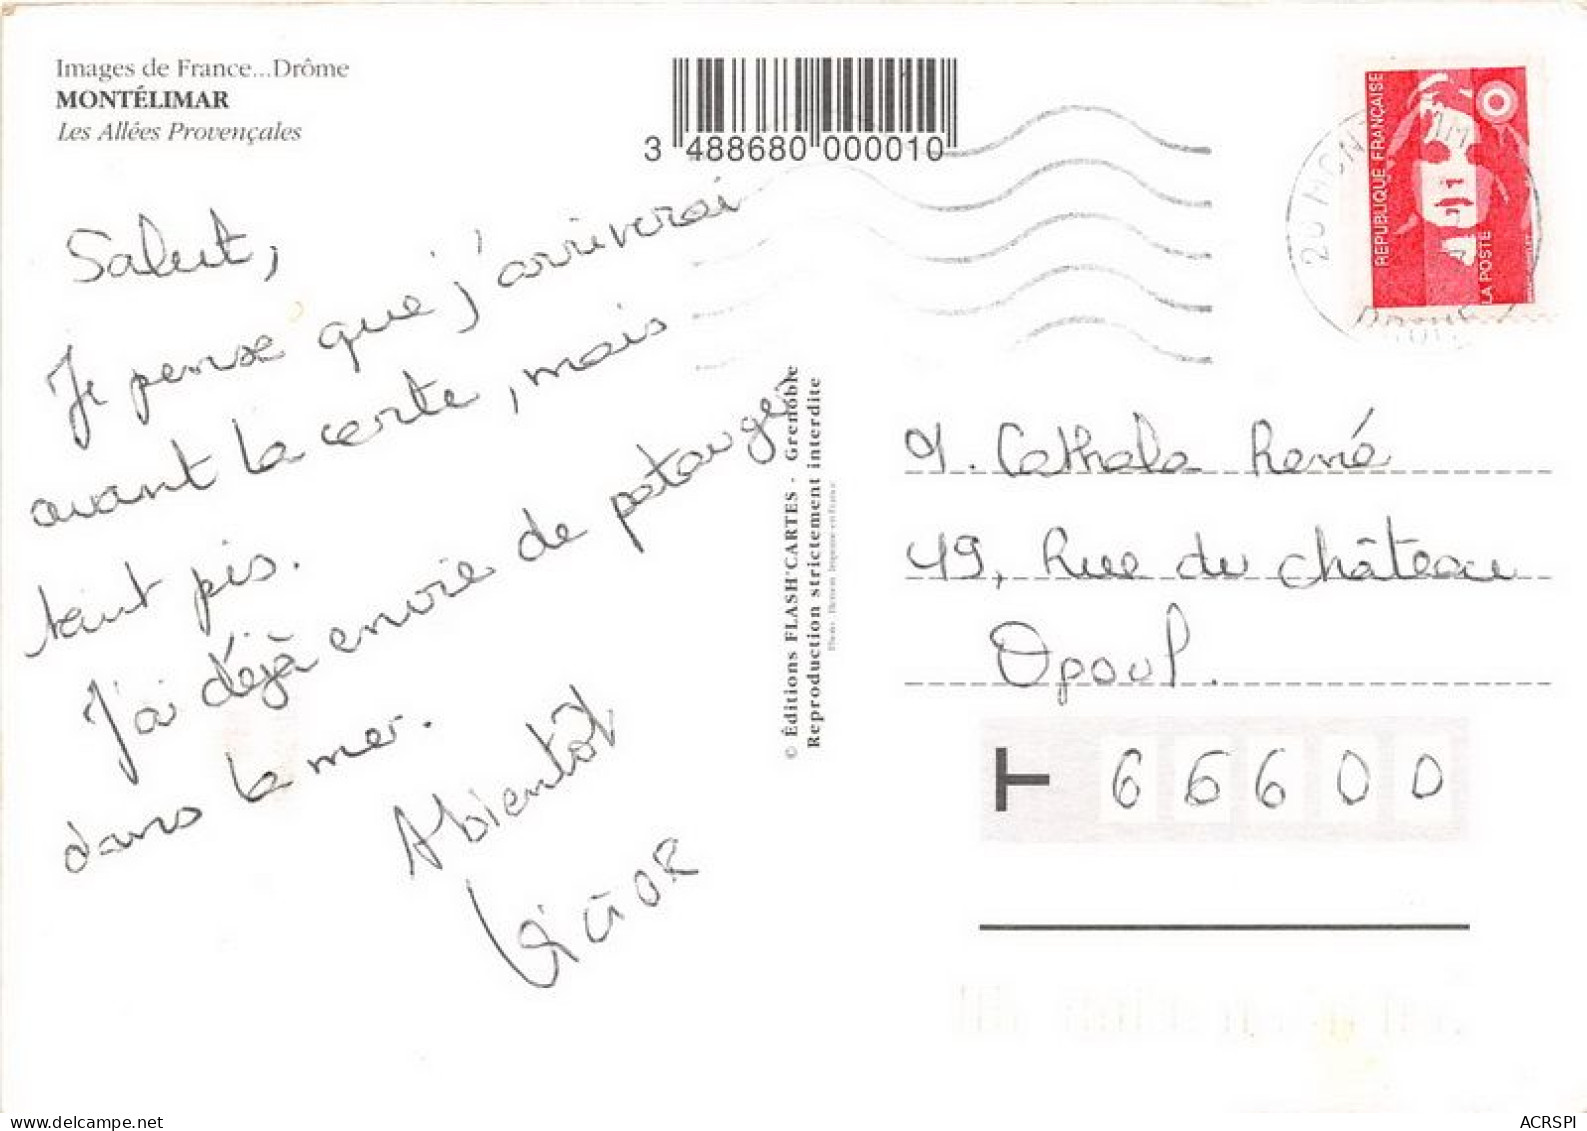 Images de France...Drôme
MONTÉLIMAR
Les Allées Provençales
3 488680 000010
REPUBLIQUE FRANÇAISE
LA POSTE
Salut,
Je pense que j'arriverai
avant la carte, mais
tant pis.
J'ai déjà envie de patauger
dans la mer.
Abientôt
© Éditions FLASH'CARTES - Grenoble
Reproduction strictement interdite
M. Cathala René
49, Rue du château
Opoul.
T 66600
ACRSPI